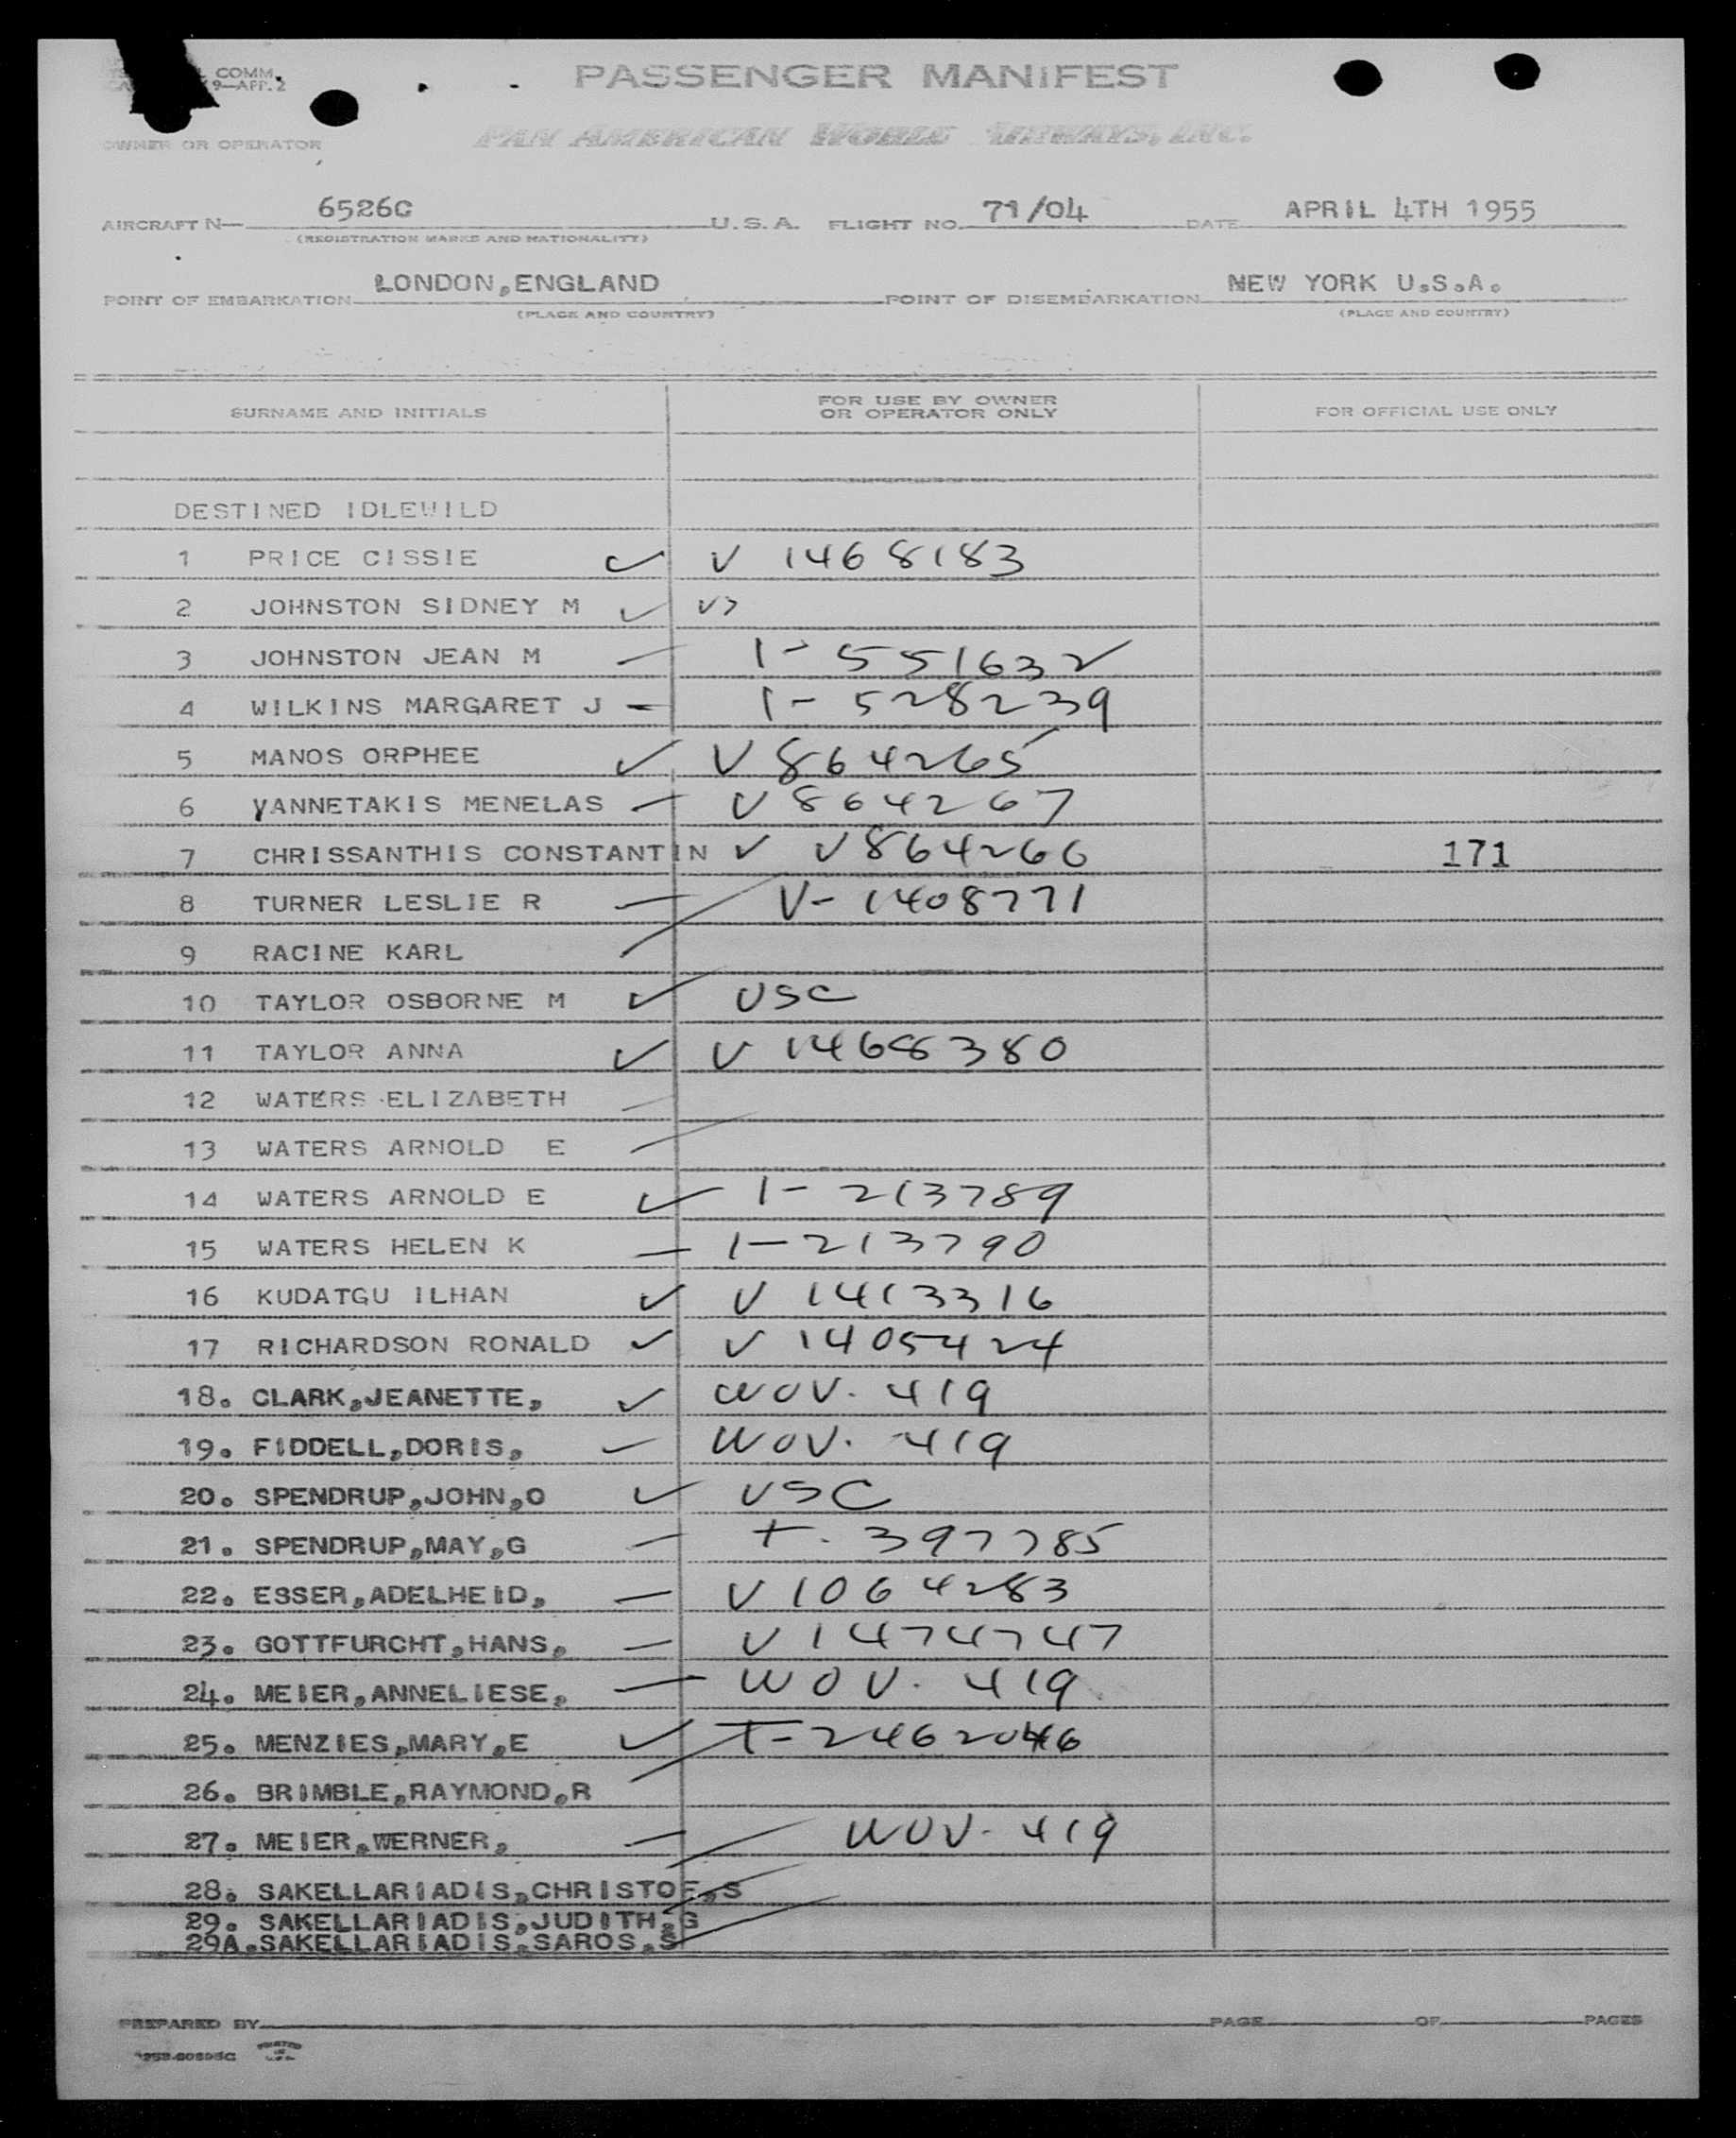 COMM.
9—APP.2
PASSENGER MANIFEST
OWNER OR OPERATOR
PAN AMERICAN WORLD AIRWAYS, INC.
AIRCRAFT N— 6526C U.S.A. FLIGHT NO. 71/04 DATE APRIL 4TH 1955
(REGISTRATION MARKS AND NATIONALITY)
POINT OF EMBARKATION LONDON,ENGLAND POINT OF DISEMBARKATION NEW YORK U.S.A.
(PLACE AND COUNTRY) (PLACE AND COUNTRY)
SURNAME AND INITIALS FOR USE BY OWNER OR OPERATOR ONLY FOR OFFICIAL USE ONLY
DESTINED IDLEWILD
1 PRICE CISSIE ✓ V 1468183
2 JOHNSTON SIDNEY M ✓
3 JOHNSTON JEAN M 1- 551632
4 WILKINS MARGARET J 1- 528239
5 MANOS ORPHEE ✓ V 864265
6 YANNETAKIS MENELAS V 864267
7 CHRISSANTHIS CONSTANTIN ✓ V 864266 171
8 TURNER LESLIE R V- 1408771
9 RACINE KARL
10 TAYLOR OSBORNE M ✓ USC
11 TAYLOR ANNA ✓ V 1468380
12 WATERS ELIZABETH
13 WATERS ARNOLD E
14 WATERS ARNOLD E ✓ 1- 213789
15 WATERS HELEN K 1-213790
16 KUDATGU ILHAN ✓ V 1413316
17 RICHARDSON RONALD ✓ V 1405424
18. CLARK,JEANETTE, ✓ WOV. 419
19. FIDDELL,DORIS, WOV. 419
20. SPENDRUP,JOHN,O ✓ USC
21. SPENDRUP,MAY,G T. 397785
22. ESSER,ADELHEID, V 1064283
23. GOTTFURCHT,HANS, V 1474747
24. MEIER,ANNELIESE, WOV. 419
25. MENZIES,MARY,E ✓ T-2462046
26. BRIMBLE,RAYMOND,R
27. MEIER,WERNER, WOV. 419
28. SAKELLARIADIS,CHRISTOF,S
29. SAKELLARIADIS,JUDITH,G
29A.SAKELLARIADIS,SAROS,S
PREPARED BY PAGE OF PAGES
PRINTED IN U.S.A.